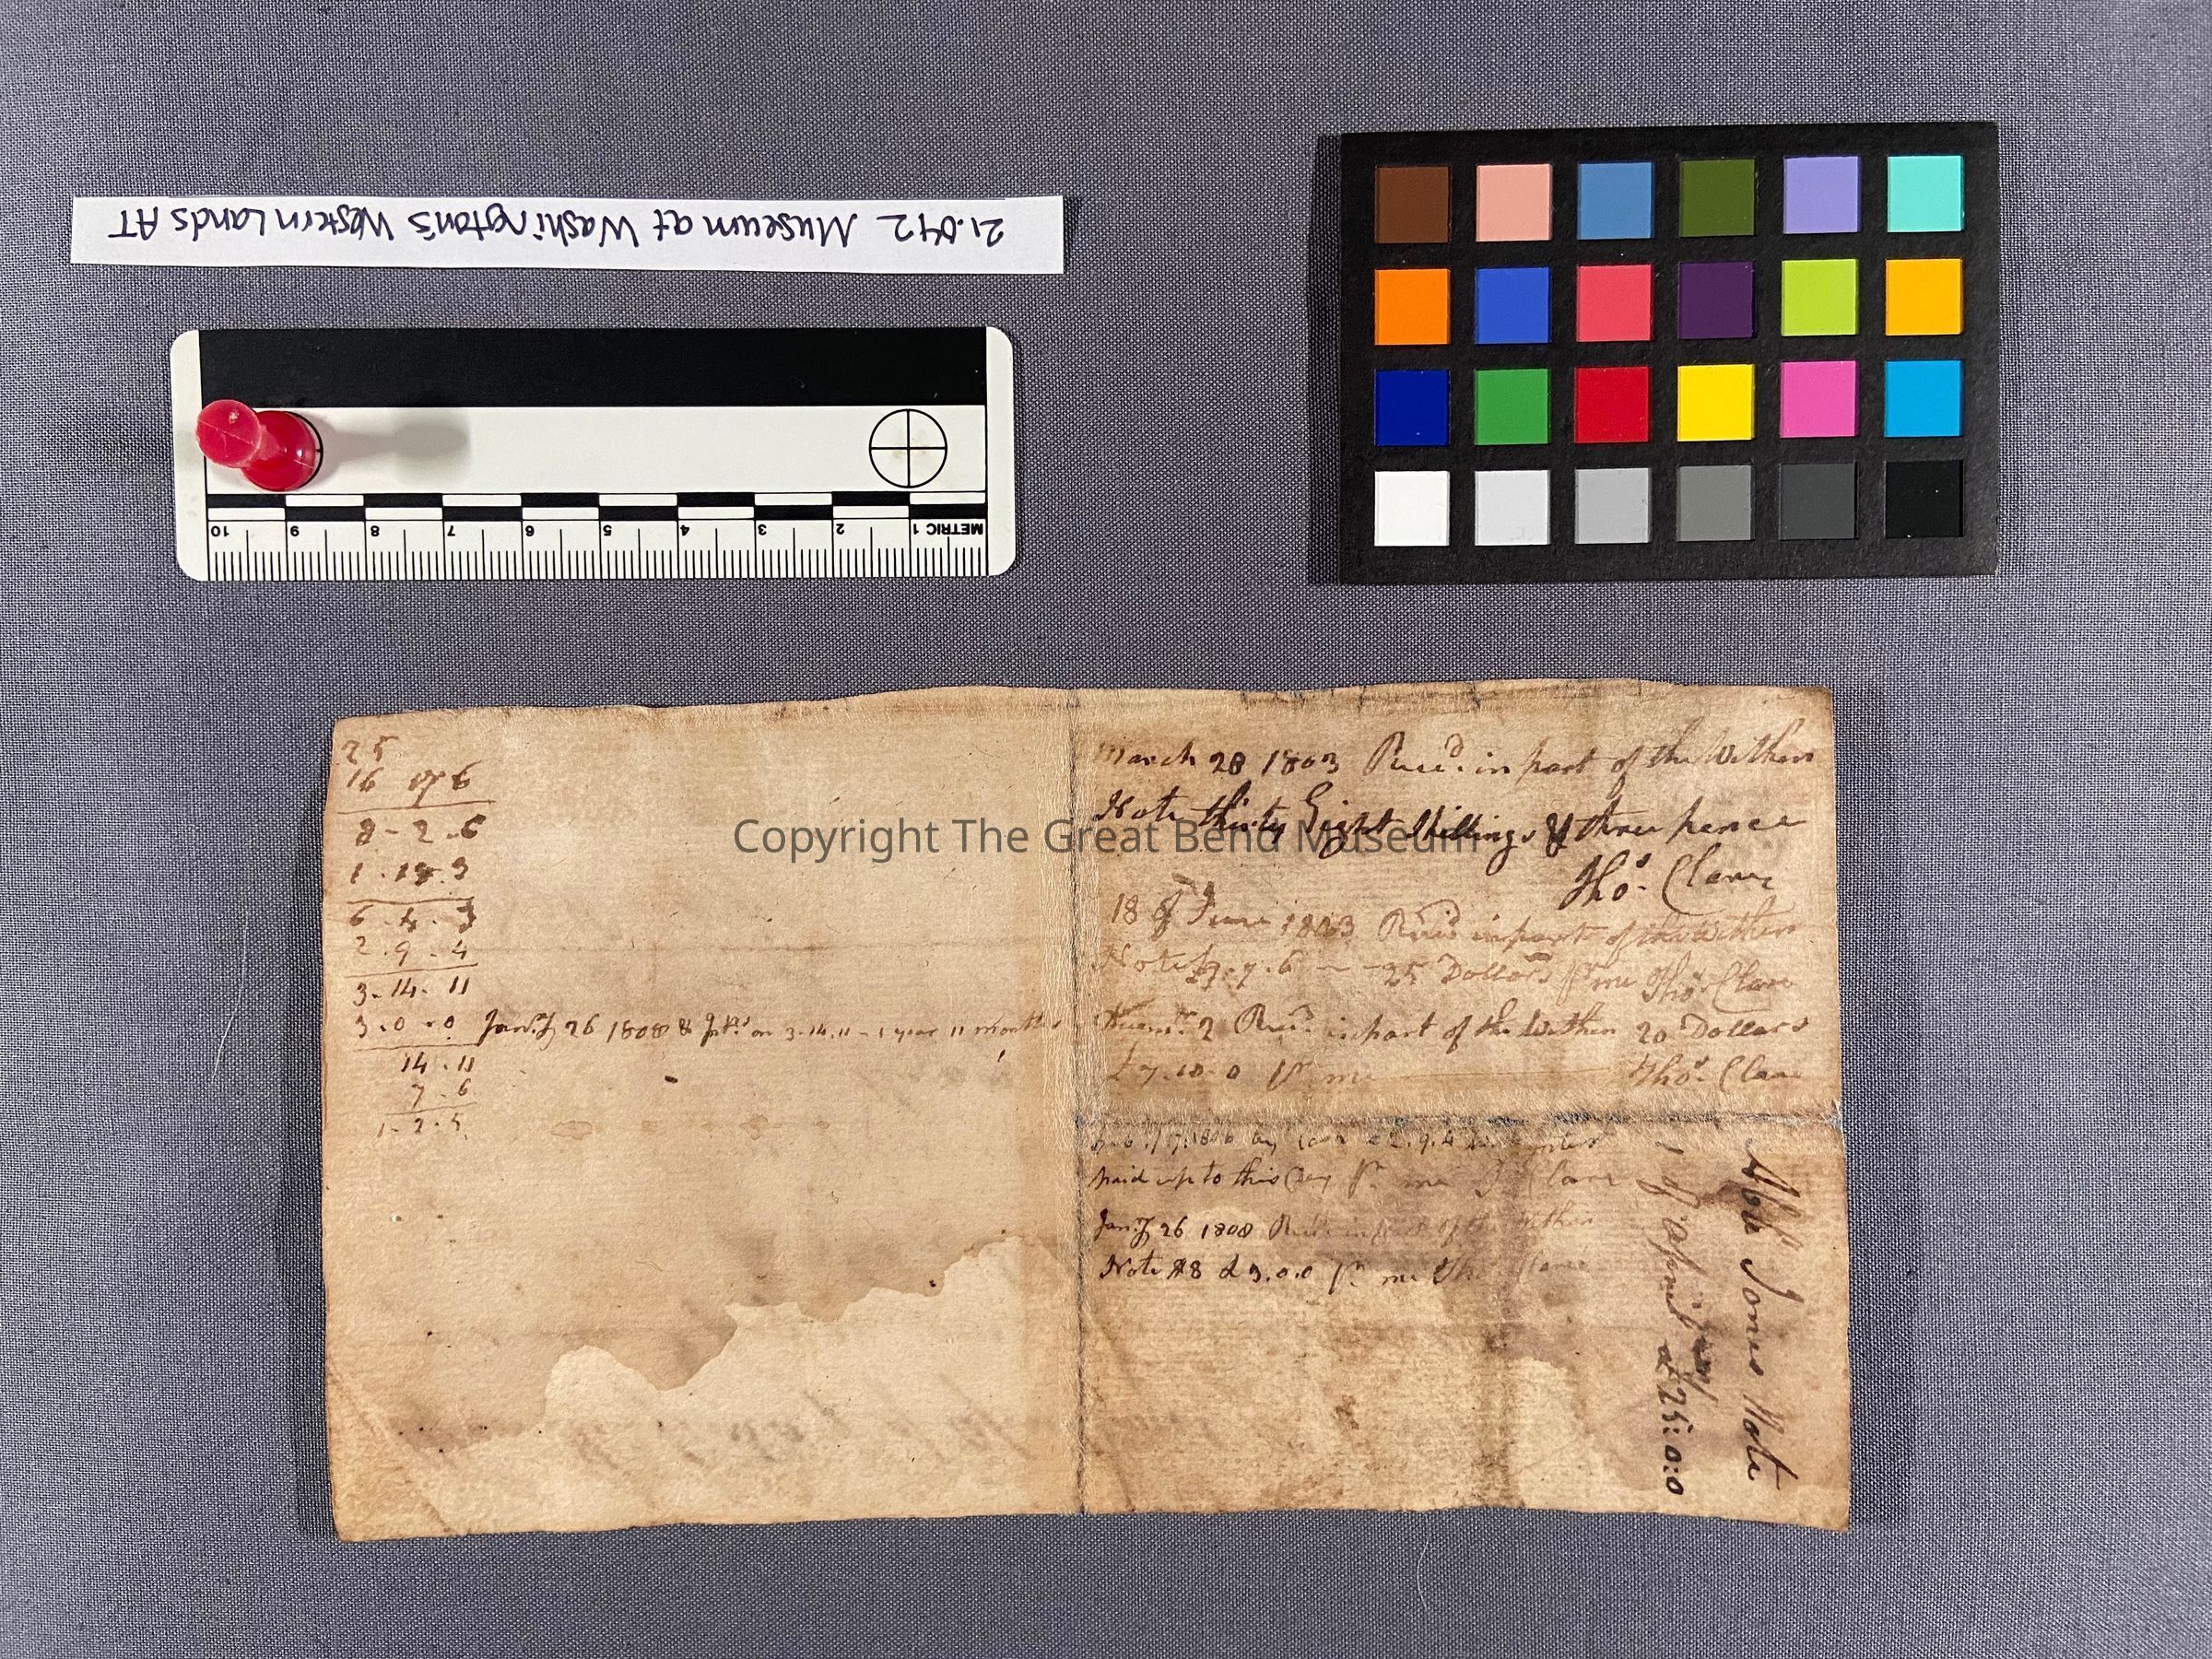 21.042 Museum at Washington's Western Lands AT
METRIC 1 2 3 4 5 6 7 8 9 10
Copyright The Great Bend Museum
25
16
8-2.6
1.18.3
6.4.3
2.9.4
3.14.11
3.0.0 Jany 26 1808 & on 3.14.11 - 1 year 11 months
14.11
7.6
1.2.5
March 28 1803 Recd. in part of the Within
Note thirty Eight Shillings & three pence
Thos. Clare
18 of June 1803 Recd in part of the Within
Note 25 Dollars pr me Thos. Clare
2 Recd. in part of the Within 20 Dollars
£7.10.0 pr me Thos. Clare
by 2.9.4
paid up to this Day pr. me Clare
Jany 26 1808 Recd in part of the Within
Note £3.0.0 pr. me Clare
Jones Note
£25:0:0